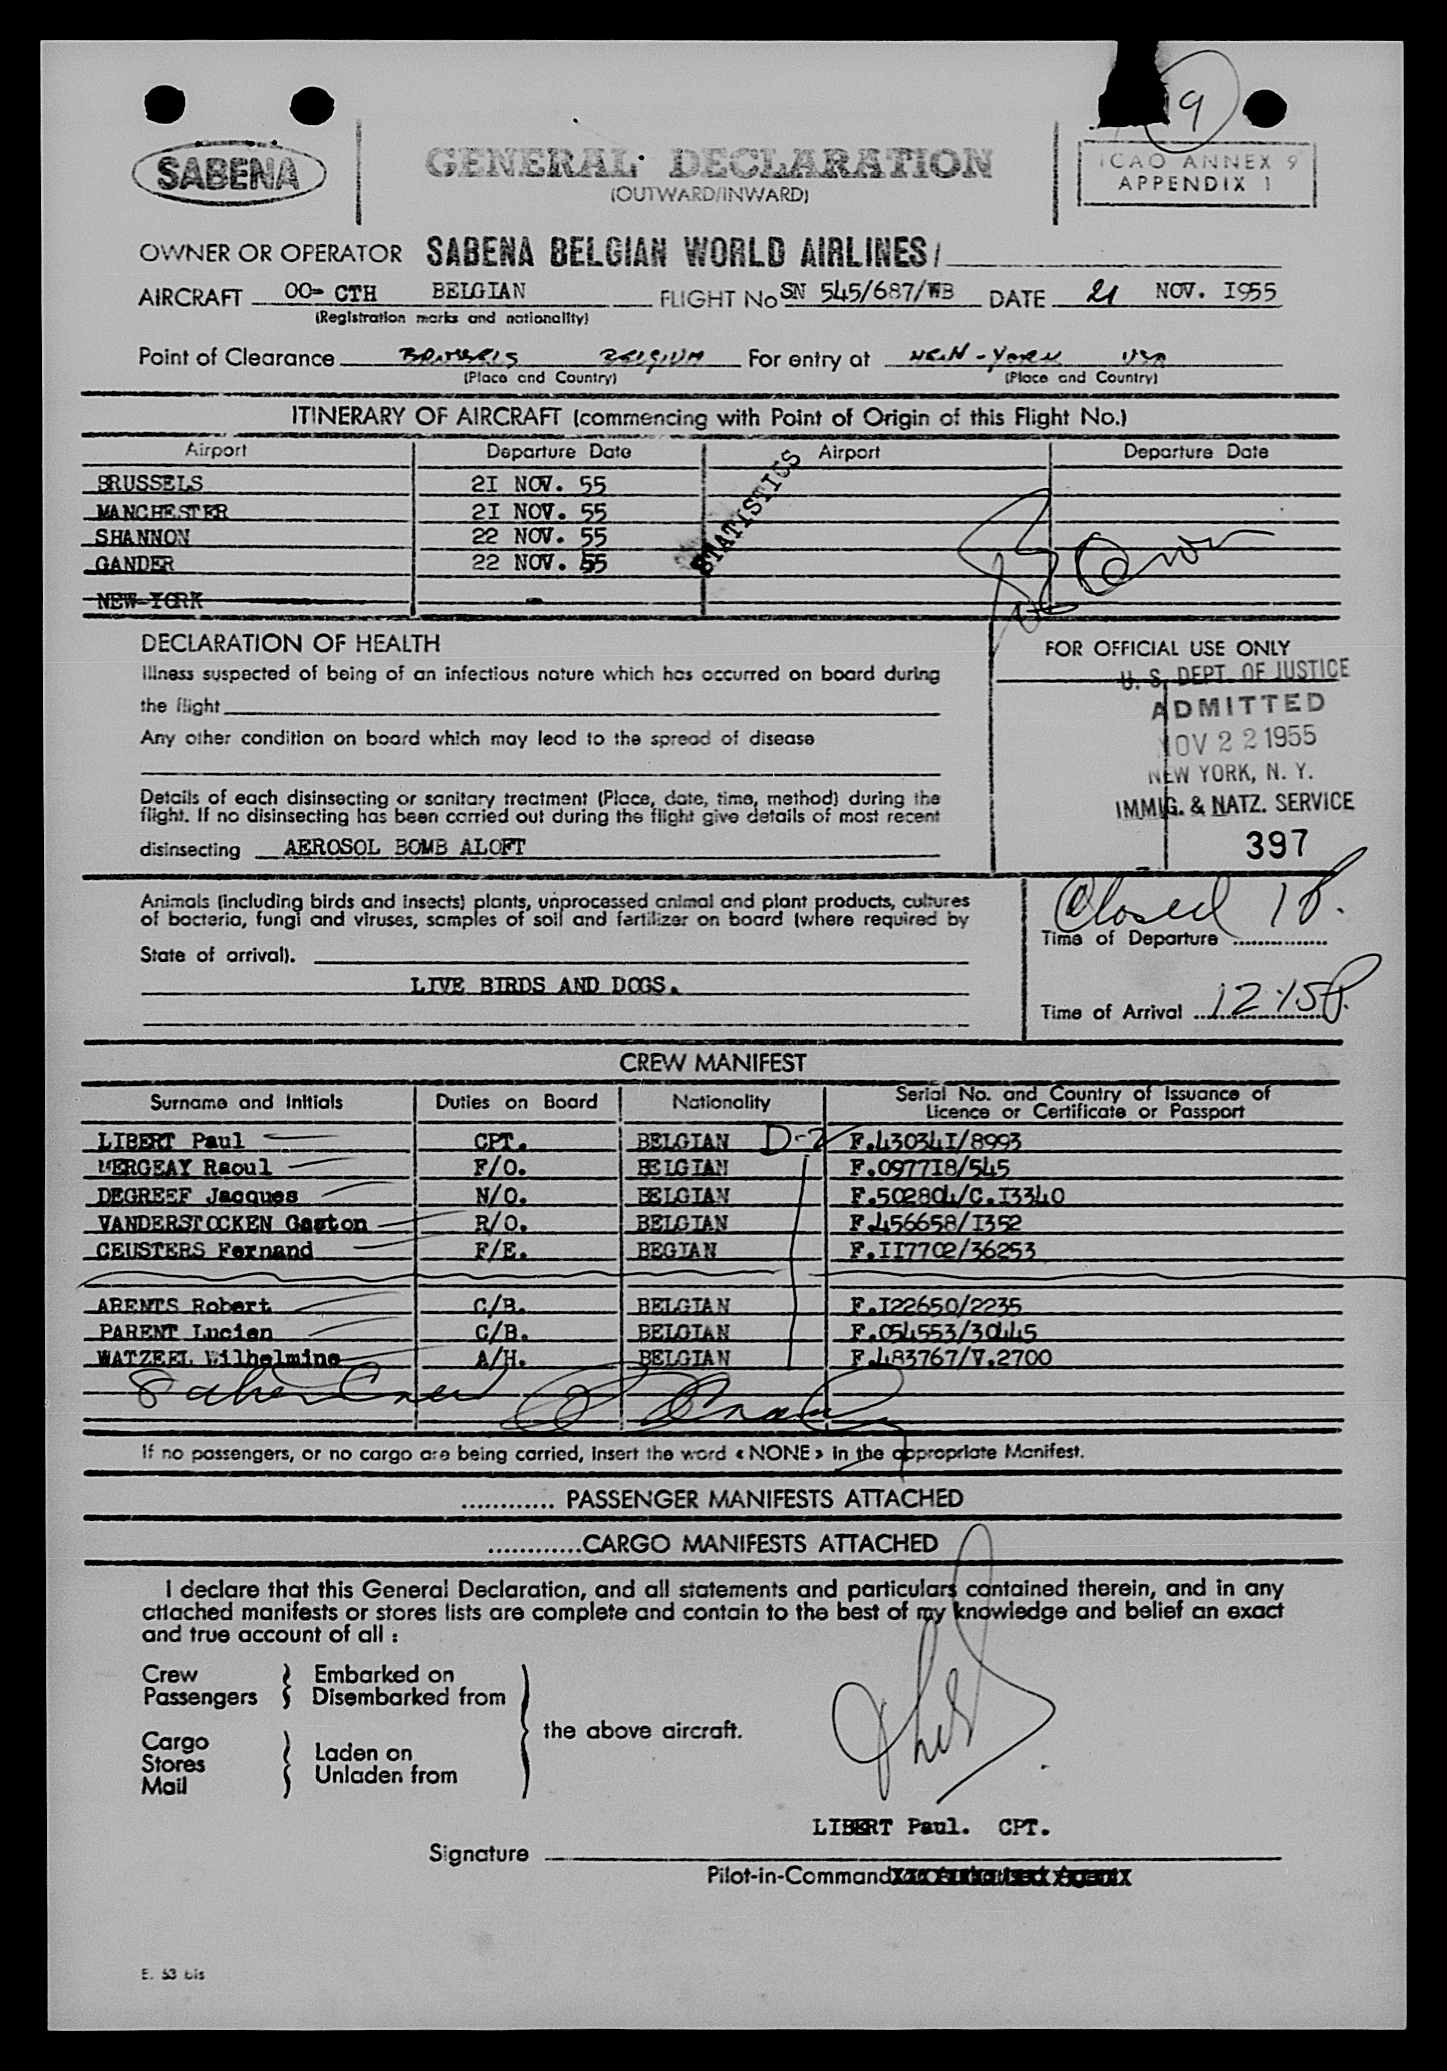 9
SABENA
GENERAL DECLARATION
(OUTWARD/INWARD)
ICAO ANNEX 9
APPENDIX 1
OWNER OR OPERATOR SABENA BELGIAN WORLD AIRLINES/
AIRCRAFT OO- CTH BELGIAN FLIGHT No SN 545/687/WB DATE 21 NOV. I955
(Registration marks and nationality)
Point of Clearance BRUSSELS BELGIUM For entry at NEW-YORK USA
(Place and Country) (Place and Country)
ITINERARY OF AIRCRAFT (commencing with Point of Origin of this Flight No.)
Airport Departure Date Airport Departure Date
BRUSSELS 2I NOV. 55
MANCHESTER 2I NOV. 55
SHANNON 22 NOV. 55
GANDER 22 NOV. 55
NEW-YORK -
STATISTICS
DECLARATION OF HEALTH
Illness suspected of being of an infectious nature which has occurred on board during
the flight
Any other condition on board which may lead to the spread of disease
Details of each disinsecting or sanitary treatment (Place, date, time, method) during the
flight. If no disinsecting has been carried out during the flight give details of most recent
disinsecting AEROSOL BOMB ALOFT
FOR OFFICIAL USE ONLY
U. S. DEPT. OF JUSTICE
ADMITTED
NOV 22 1955
NEW YORK, N. Y.
IMMIG. & NATZ. SERVICE
397
Animals (including birds and insects) plants, unprocessed animal and plant products, cultures
of bacteria, fungi and viruses, samples of soil and fertilizer on board (where required by
State of arrival).
LIVE BIRDS AND DOGS.
Closed 1P.
Time of Departure ...............
Time of Arrival 12:15P.
CREW MANIFEST
Surname and Initials Duties on Board Nationality Serial No. and Country of Issuance of
Licence or Certificate or Passport
LIBERT Paul CPT. BELGIAN D-2 F.43034I/8993
MERGEAY Raoul F/O. BELGIAN F.0977I8/545
DEGREEF Jacques N/O. BELGIAN F.502804/C.I3340
VANDERSTOCKEN Gaston R/O. BELGIAN F.456658/I352
CEUSTERS Fernand F/E. BEGIAN F.II7702/36253
ARENTS Robert C/B. BELGIAN F.I22650/2235
PARENT Lucien C/B. BELGIAN F.054553/30445
WATZEEL Wilhelmine A/H. BELGIAN F.483767/V.2700
If no passengers, or no cargo are being carried, insert the word « NONE » in the appropriate Manifest.
............ PASSENGER MANIFESTS ATTACHED
............CARGO MANIFESTS ATTACHED
I declare that this General Declaration, and all statements and particulars contained therein, and in any
attached manifests or stores lists are complete and contain to the best of my knowledge and belief an exact
and true account of all :
Crew Embarked on
Passengers Disembarked from
the above aircraft.
Cargo
Stores Laden on
Mail Unladen from
LIBERT Paul. CPT.
Signature
Pilot-in-Command
E. 53 bis